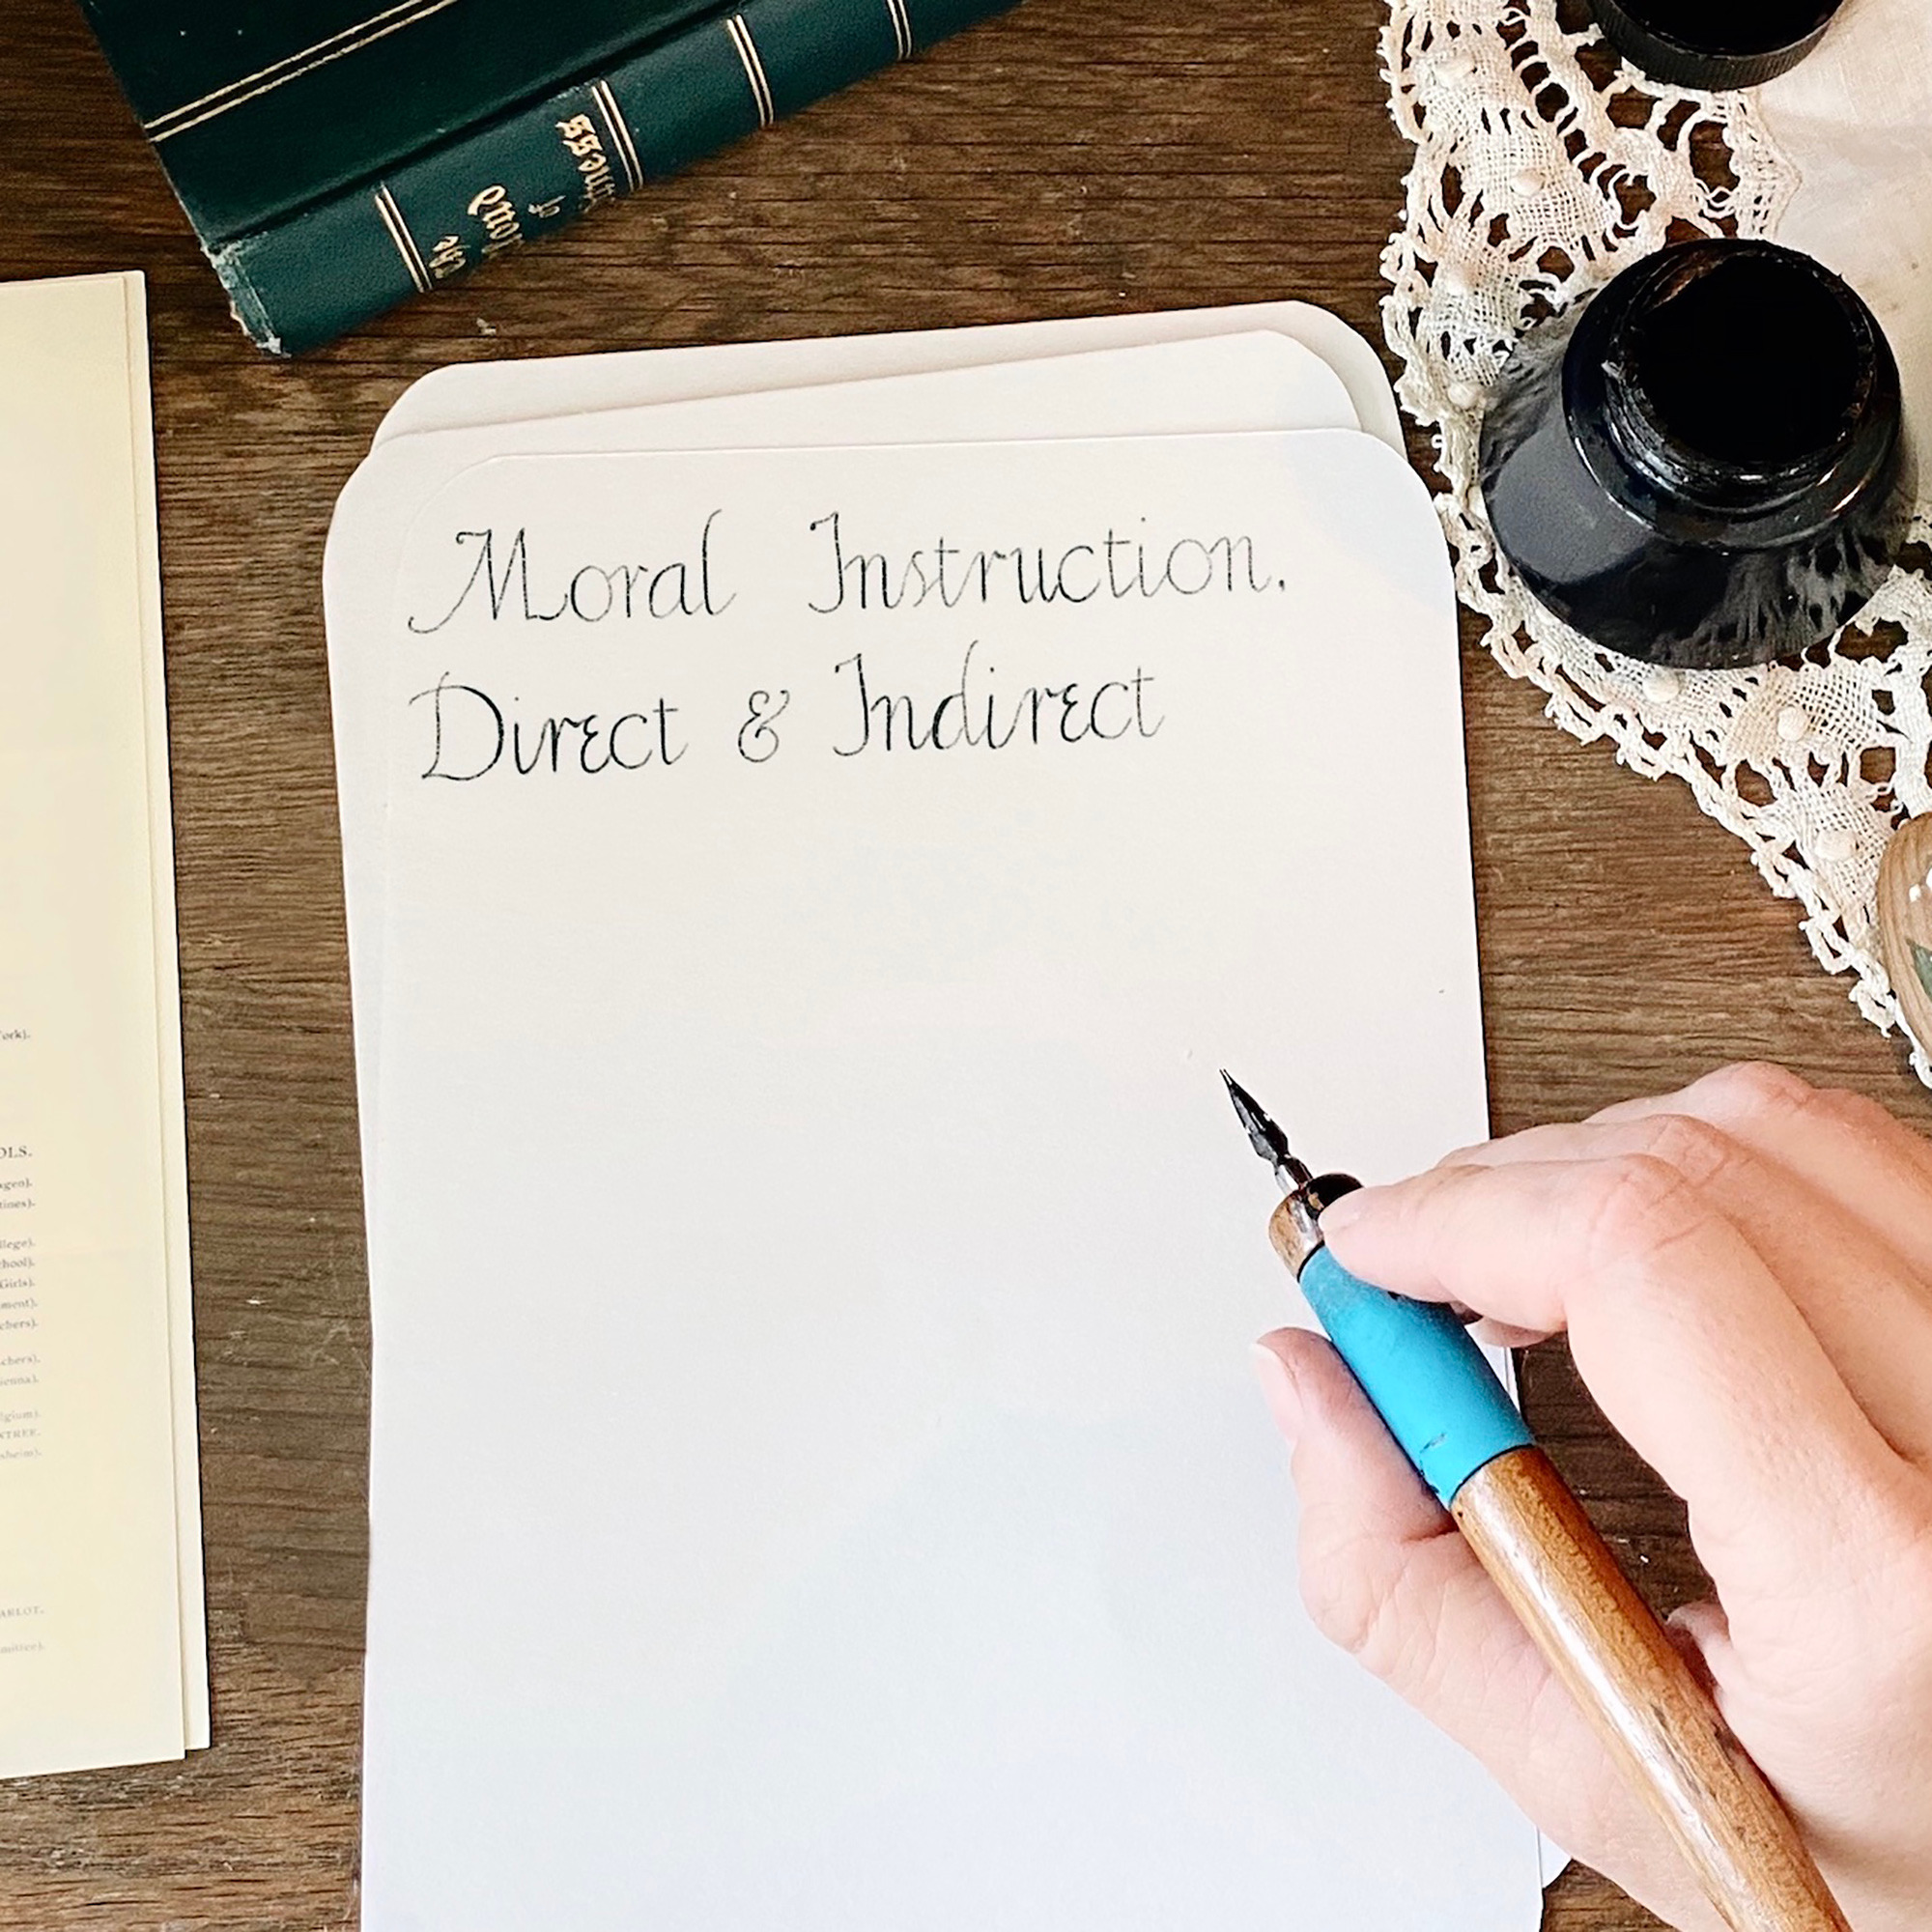 Moral Instruction.
Direct & Indirect
of
ork).
OLS.
agen).
tines).
llege).
chool).
Girls).
ment).
chers).
chers).
ienna).
lgium).
NTREE.
sheim).
ARLOT.
mittee).